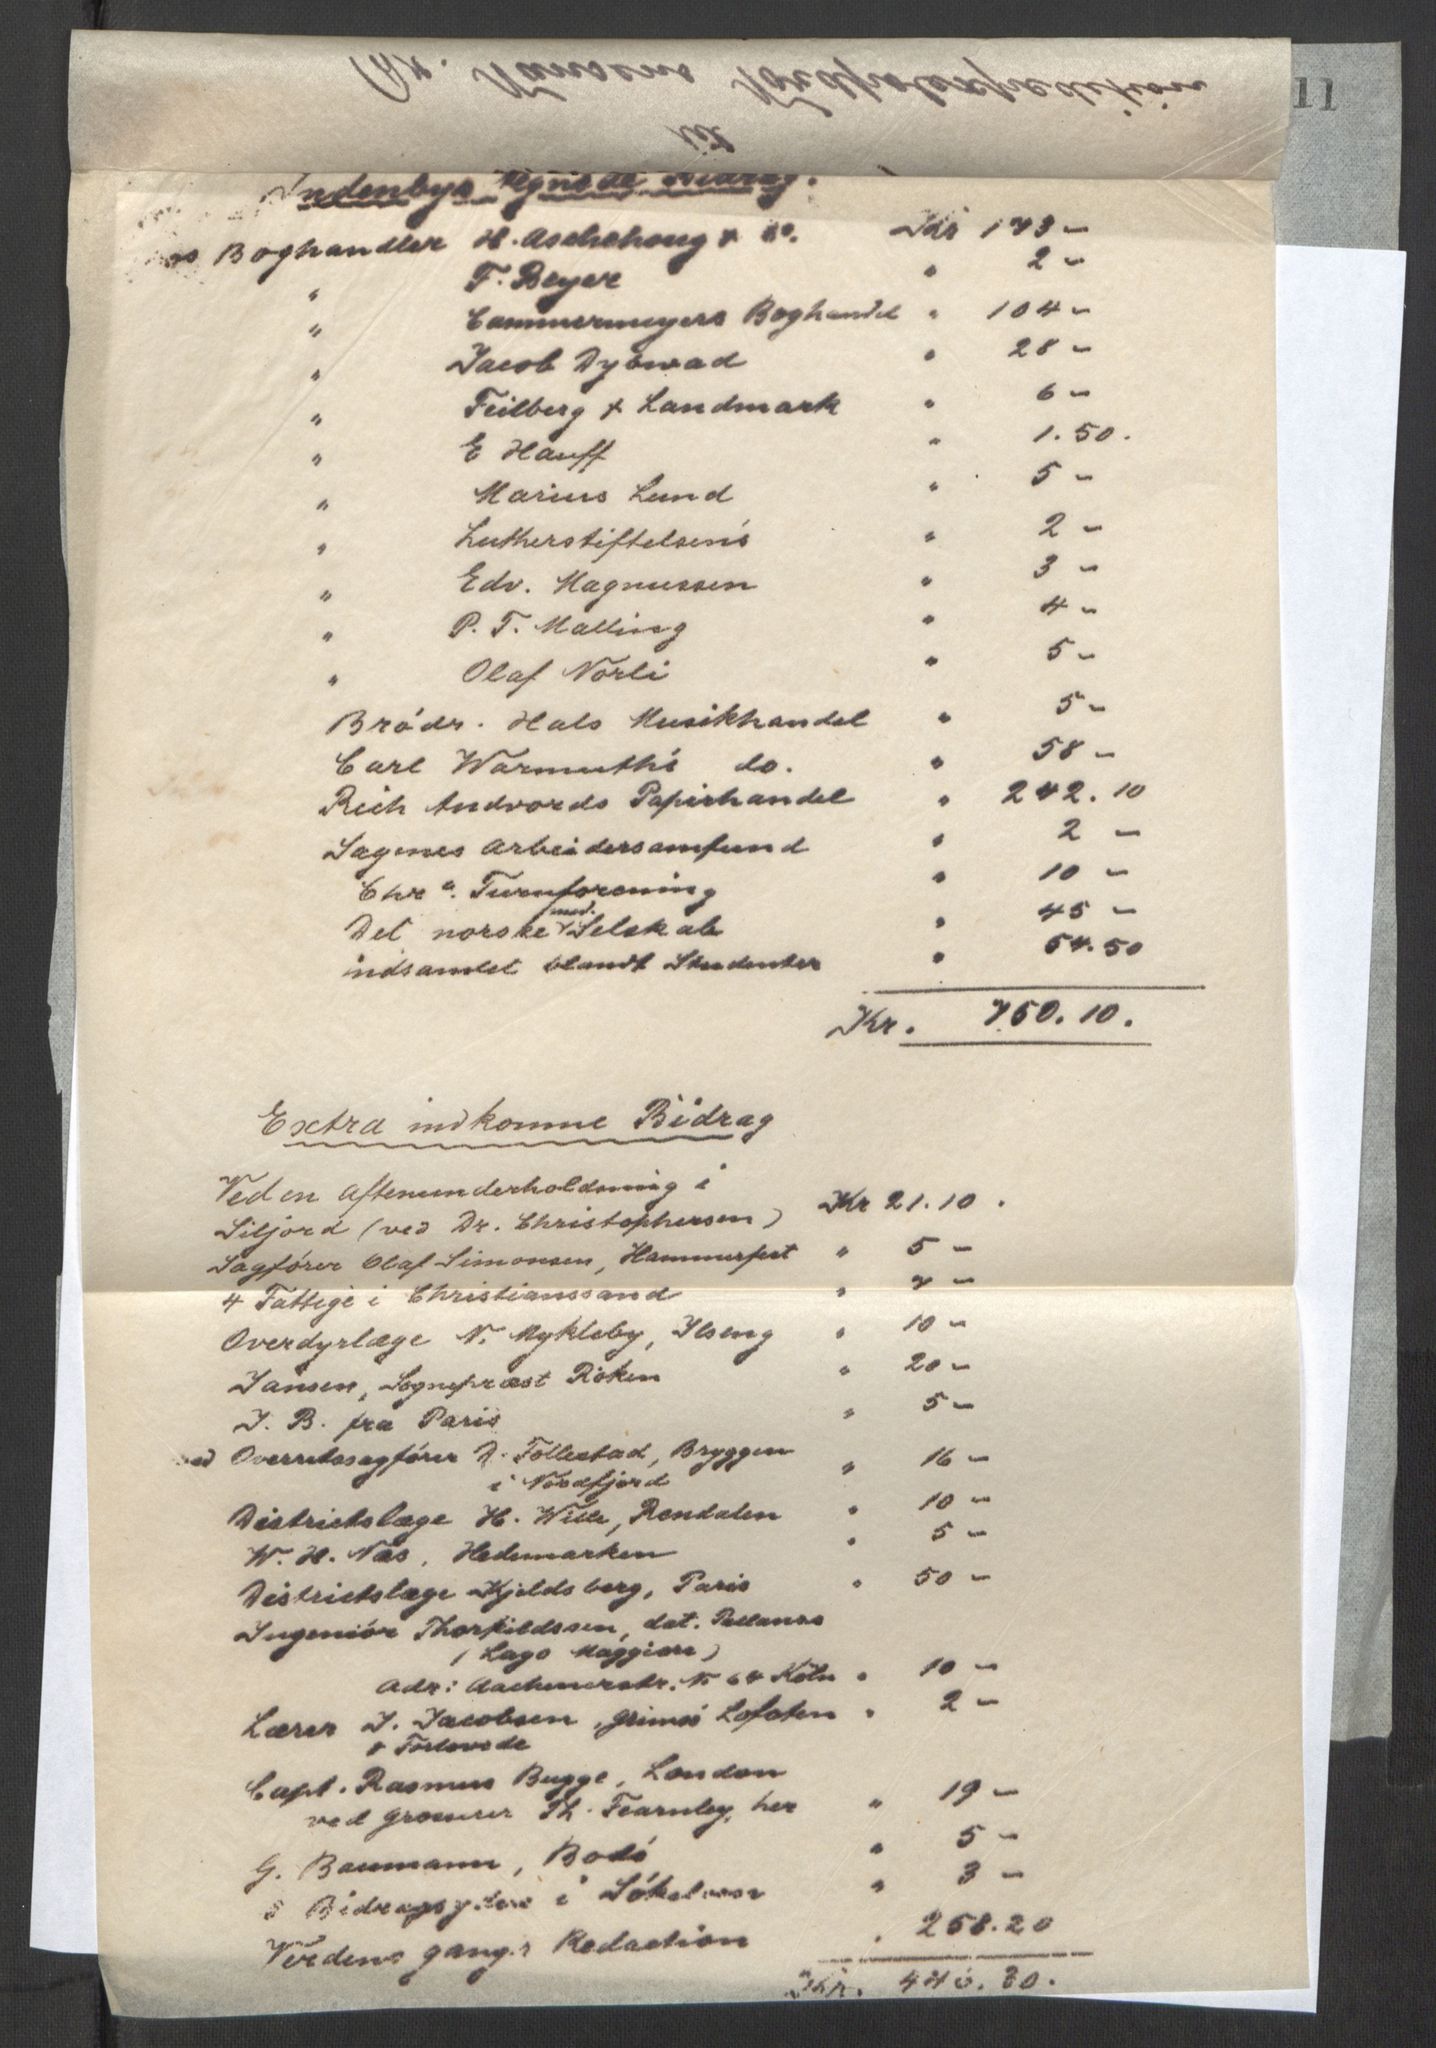 Chr. Nansens Nordpolexpedition
til
Indenbys tegnede Bidrag.
hos Boghandler H. Aschehoug & Co. Kr 173 –
" F. Beyer " 2 –
" Cammermeyers Boghandel " 104 –
" Jacob Dybwad " 28 –
" Feilberg & Landmark " 6 –
" E Hauff " 1.50.
" Marius Lund " 5 –
" Lutherstiftelsens " 2 –
" Edv. Magnussen " 3 –
" P. T. Malling " 4 –
" Olaf Norli " 5 –
Brødr. Hals Musikhandel " 5 –
Carl Warmuths do. " 58 –
Rich Andvords Papirhandel " 242.10
Sagenes Arbeidersamfund " 2 –
Chr a. Turnforening " 10 –
Det norske med. Selskab " 45 –
indsamlet blandt Studenter " 54.50
Kr. 750.10.
Extra indkomne Bidrag
Ved en Aftenunderholdning i
Siljord (ved Dr. Christophersen) Kr 21.10.
Sagfører Olaf Simonsen, Hammerfest " 5 –
4 Fattige i Christianssand " 7 –
Overdyrlæge N. Mykleby, Ilseng " 10 –
Jansen, Sognepræst Røken " 20 –
J. B. fra Paris " 5 –
ved Overretssagfører D. Tollestad, Bryggen " 16 –
i Nordfjord
Districtslæge H. Wille, Rendalen " 10 –
W. H. Næs, Hedemarken " 5 –
Districtslæge Kjeldsberg, Paris " 50 –
Ingeniør Thorkildssen, dat. Pallanza
(Lago Maggiore)
Adr: Aachenerstr. No 64 Köln " 10 –
Lærer J. Jacobsen, Grimsø Lofoten " 2 –
& Forlovede
Capt. Rasmus Bugge, London
ved Grosserer Th. Fearnley, her " 19 –
G. Baumann, Bodø " 5 –
3 Bidragsydere i Løkelven " 3 –
Verdens Gangs Redaction " 258.20
Kr. 446.30.
11